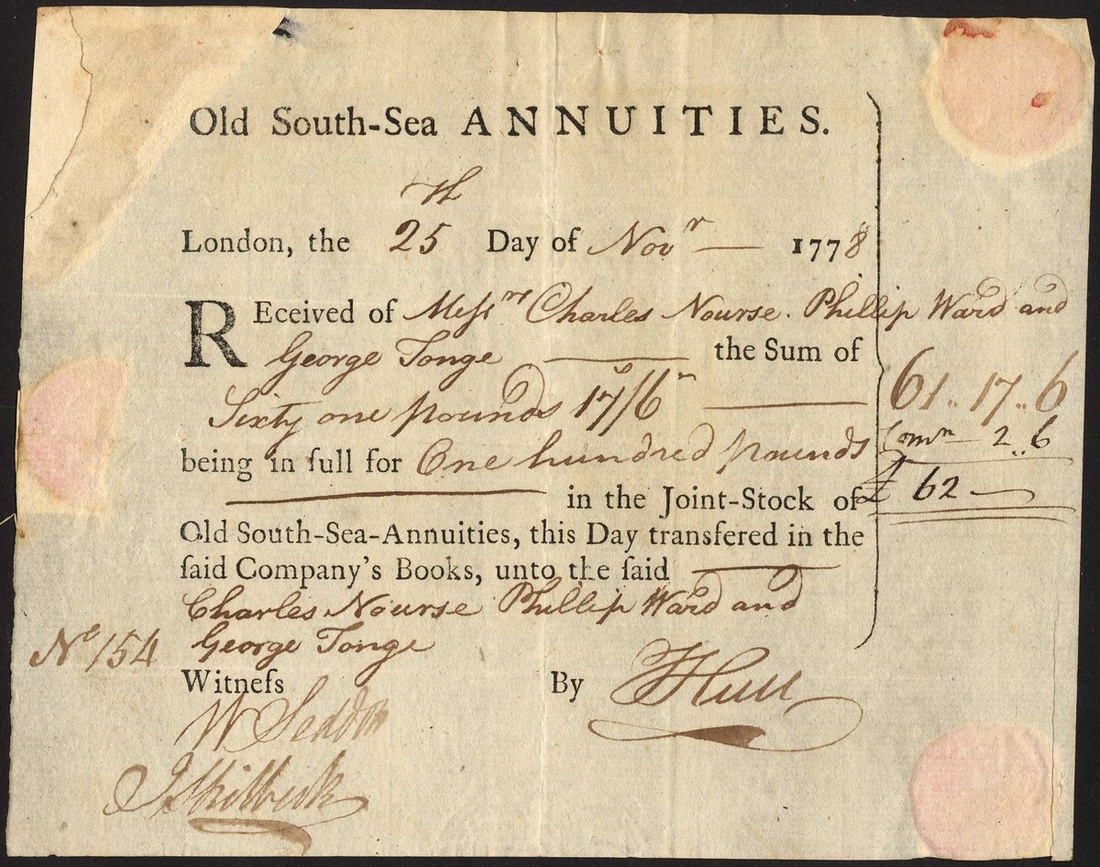 Old South-Sea ANNUITIES.
London, the 25th Day of Novr 1778
REceived of Messrs Charles Nourse. Phillip Ward and
George Tonge the Sum of
Sixty one pounds 17s/6d 61..17..6
being in full for One hundred pounds Comn 2..6
in the Joint-Stock of £ 62
Old South-Sea-Annuities, this Day transfered in the
ſaid Company's Books, unto the ſaid
Charles Nourse Phillip Ward and
No 154 George Tonge
Witneſs By Hull
W Seddon